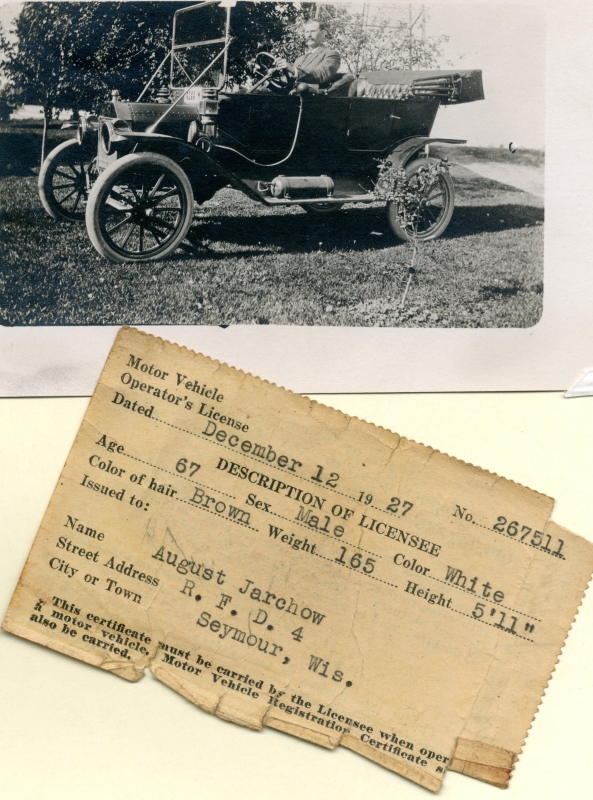 Motor Vehicle
Operator's License
Dated December 12 19 27 No. 267511
DESCRIPTION OF LICENSEE
Age 67 Sex Male Color White
Color of hair Brown Weight 165 Height 5'11"
Issued to:
Name August Jarchow
Street Address R. F. D. 4
City or Town Seymour, Wis.
This certificate must be carried by the Licensee when oper
a motor vehicle. Motor Vehicle Registration Certificate
also be carried.